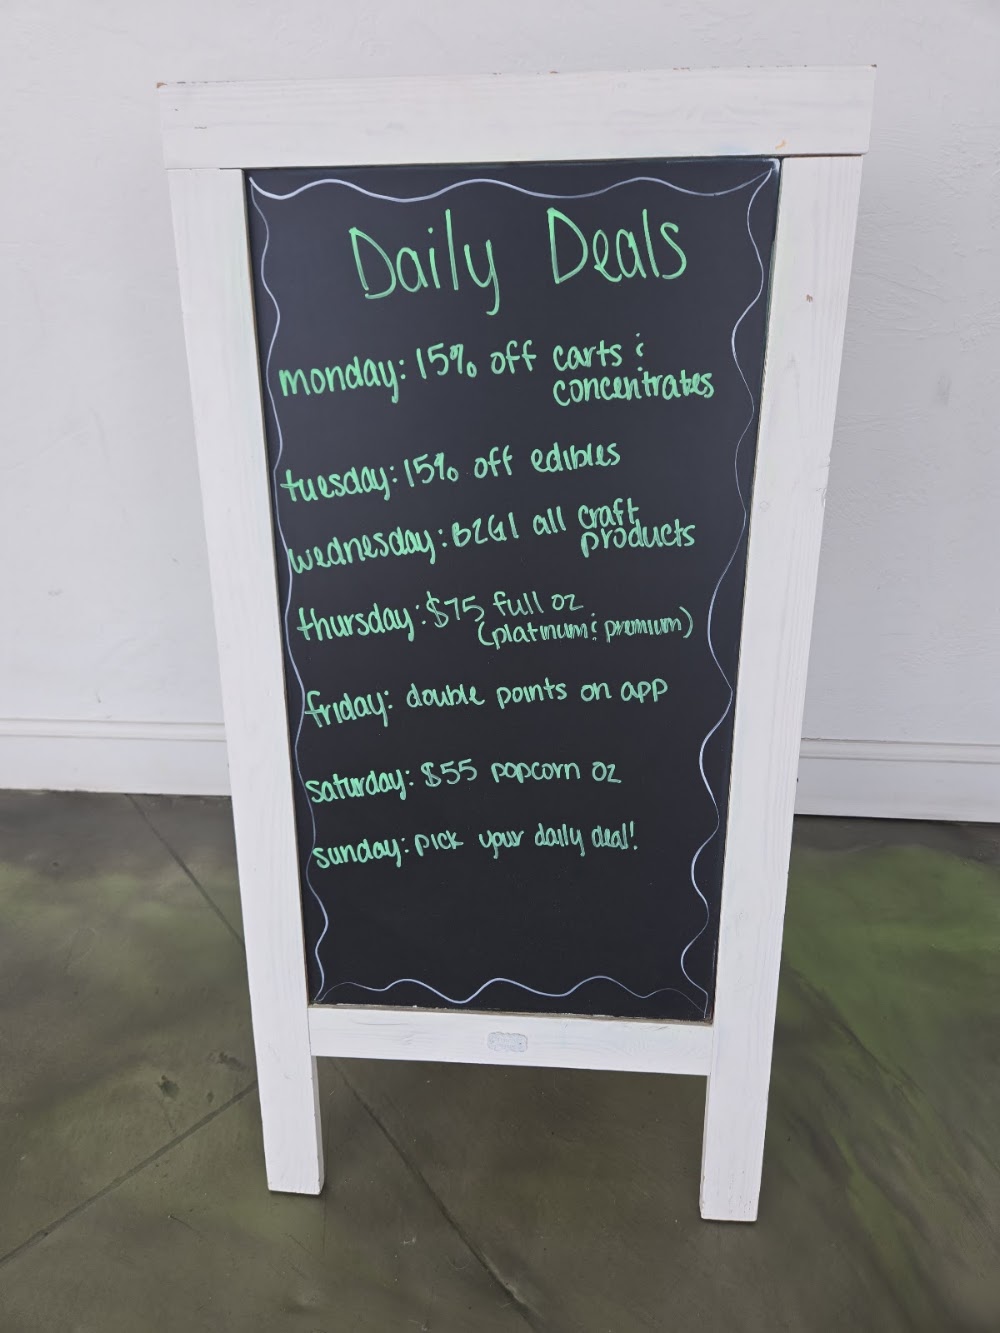 Daily Deals
monday: 15% off carts &
concentrates
tuesday: 15% off edibles
wednesday: B2G1 all craft
products
thursday: $75 full oz
(platinum & premium)
friday: double points on app
saturday: $55 popcorn oz
sunday: pick your daily deal!